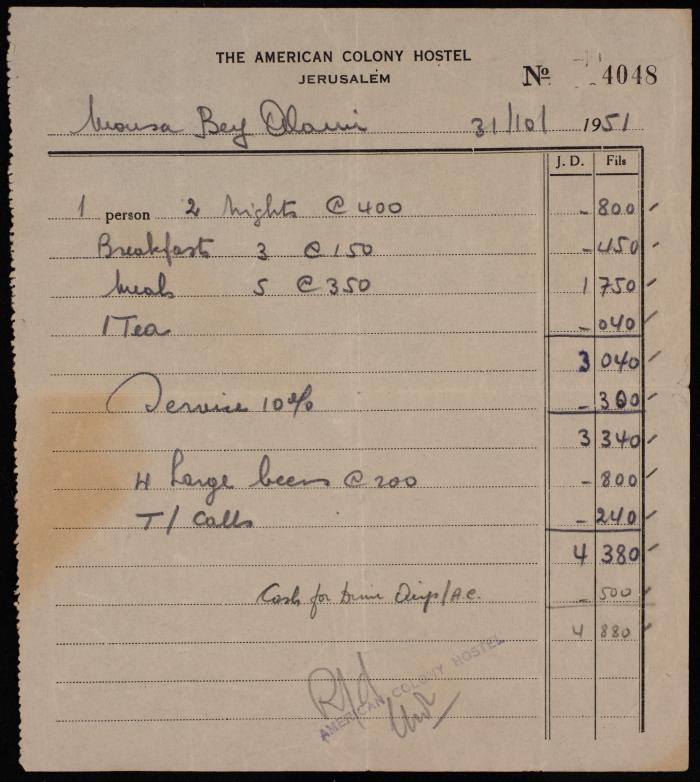 THE AMERICAN COLONY HOSTEL
JERUSALEM
No 4048
Mousa Bey Alami 31/10/ 1951
J. D. Fils
1 person 2 nights @ 400 - 800
Breakfasts 3 @ 150 - 450
Meals 5 @ 350 1 750
1 Tea - 040
3 040
Service 10% - 300
3 340
4 Large beers @ 200 - 800
T/ Calls - 240
4 380
Cash for A.C. - 500
4 880
AMERICAN COLONY HOSTEL